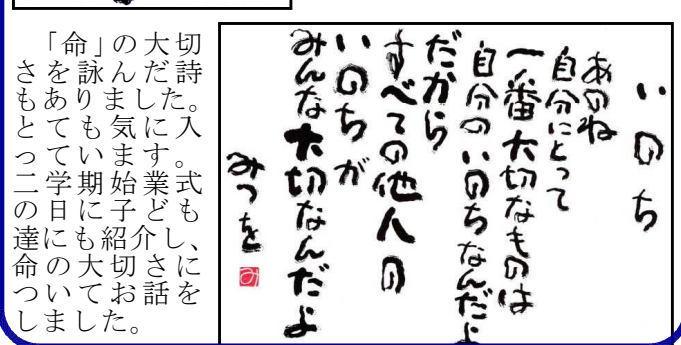 「命」の大切
さを詠んだ詩
もありました。
とても気に入
っています。
二学期始業式
の日に子ども
達にも紹介し、
命の大切さに
ついてお話を
しました。
いのち
あのね
自分にとって
一番大切なものは
自分のいのちなんだよ
だから
すべての他人の
いのちが
みんな大切なんだよ
みつを
み